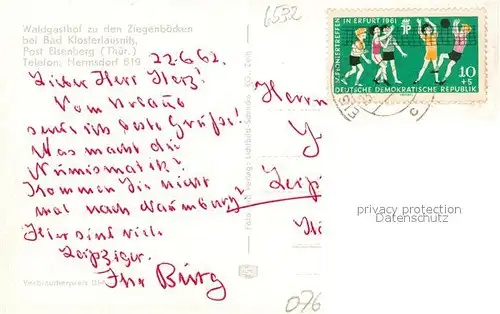 Waldgasthof zu den Ziegenböcken
bei Bad Klosterlausnitz,
Post Eisenberg (Thür.)
Telefon: Hermsdorf 619
22.6.62.
Lieber Herr Herz!
Vom Urlaub
sende ich beste Grüße!
Was macht die
Numismatik?
Kommen Sie nicht
mal nach Naumburg?
Hier sind viele
Leipziger.
Ihr Burg
Verbraucherpreis
6532
Herrn
Leip
076
IV. PIONIERTREFFEN IN ERFURT 1961
JP
10
+5
DEUTSCHE DEMOKRATISCHE REPUBLIK
privacy protection
Datenschutz